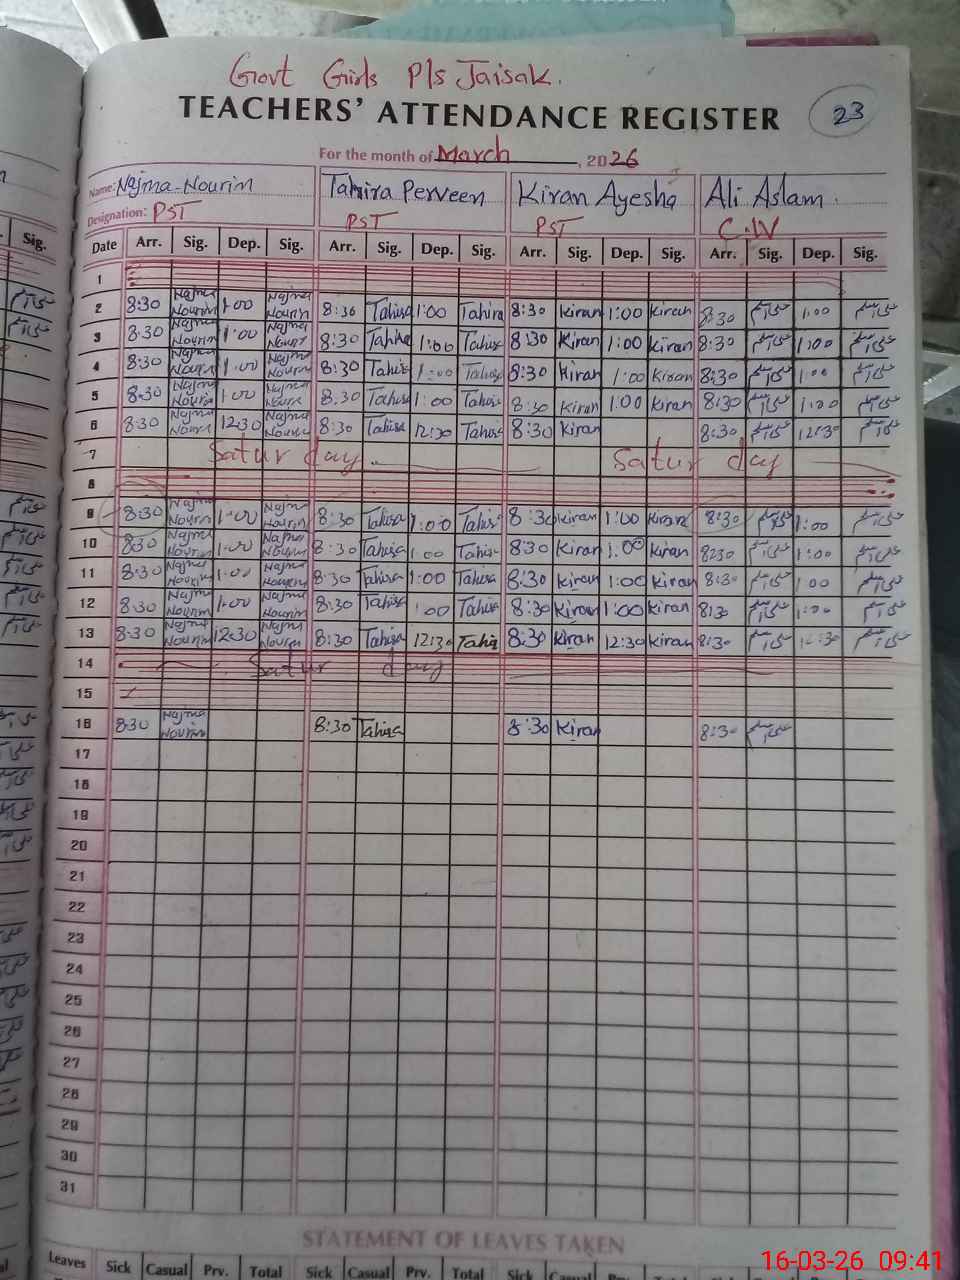 Govt Girls P/s Jaisak.
TEACHERS' ATTENDANCE REGISTER
23
For the month of March, 2026
Name: Najma Nourin Tahira Perveen Kiran Ayesha Ali Aslam.
Designation: PST PST PST C.W
Date Arr. Sig. Dep. Sig. Arr. Sig. Dep. Sig. Arr. Sig. Dep. Sig. Arr. Sig. Dep. Sig.
1
2 8:30 Najma Nourin 1:00 Najma Nourin 8:30 Tahira 1:00 Tahira 8:30 Kiran 1:00 Kiran 8:30 1:00
3 8:30 Najma Nourin 1:00 Najma Nourin 8:30 Tahira 1:00 Tahira 8:30 Kiran 1:00 Kiran 8:30 1:00
4 8:30 Najma Nourin 1:00 Najma Nourin 8:30 Tahira 1:00 Tahira 8:30 Kiran 1:00 Kiran 8:30 1:00
5 8:30 Najma Nourin 1:00 Najma Nourin 8:30 Tahira 1:00 Tahira 8:30 Kiran 1:00 Kiran 8:30 1:00
6 8:30 Najma Nourin 12:30 Najma Nourin 8:30 Tahira 12:30 Tahira 8:30 Kiran 8:30 12:30
7 Satur day Satur day
8
9 8:30 Najma Nourin 1:00 Najma Nourin 8:30 Tahira 1:00 Tahira 8:30 Kiran 1:00 Kiran 8:30 1:00
10 8:30 Najma Nourin 1:00 Najma Nourin 8:30 Tahira 1:00 Tahira 8:30 Kiran 1:00 Kiran 8:30 1:00
11 8:30 Najma Nourin 1:00 Najma Nourin 8:30 Tahira 1:00 Tahira 8:30 Kiran 1:00 Kiran 8:30 1:00
12 8:30 Najma Nourin 1:00 Najma Nourin 8:30 Tahira 1:00 Tahira 8:30 Kiran 1:00 Kiran 8:30 1:00
13 8:30 Najma Nourin 12:30 Najma Nourin 8:30 Tahira 12:30 Tahira 8:30 Kiran 12:30 Kiran 8:30 12:30
14 Satur day
15
16 8:30 Najma Nourin 8:30 Tahira 8:30 Kiran 8:30
17
18
19
20
21
22
23
24
25
26
27
28
29
30
31
STATEMENT OF LEAVES TAKEN
Leaves Sick Casual Prv. Total Sick Casual Prv. Total Sick Casual Prv.
16-03-26 09:41